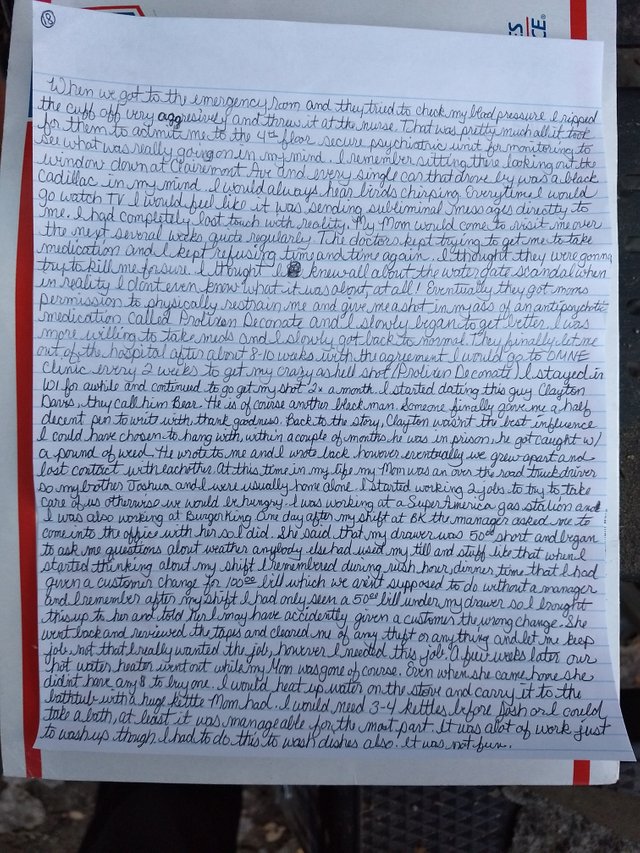 18
ES
CE®
When we got to the emergency room and they tried to check my blood pressure I ripped
the cuff off very aggresively and threw it at the nurse. That was pretty much all it took
for them to admit me to the 4th floor secure psychiatric unit for monitoring to
see what was really going on in my mind. I remember sitting there looking out the
window down at Clairemont Ave and every single car that drove by was a black
Cadillac in my mind. I would always hear birds chirping. Everytime I would
go watch TV I would feel like it was sending subliminal messages directly to
me. I had completely lost touch with reality. My Mom would come to visit me over
the next several weeks quite regularly. The doctors kept trying to get me to take
medication and I kept refusing time and time again. I thought they were gonna
try to kill me for sure. I thought I knew all about the water gate scandal when
in reality I dont even know what it was about, at all! Eventually they got moms
permission to physically restrain me and give me a shot in my ass of an antipsychotic
medication called Prolixen Deconate and I slowly began to get better. I was
more willing to take meds and I slowly got back to normal. They finally let me
out of the hospital after about 8-10 weeks with the agreement I would go to
Clinic every 2 weeks to get my crazy as hell shot (Prolixen Deconate) I stayed in
WI for awhile and continued to go get my shot 2x a month. I started dating this guy Clayton
Davis, they call him Bear. He is of course another black man. Someone finally gave me a half
decent pen to write with, thank goodness. Back to the story, Clayton wasn't the best influence
I could have chosen to hang with, within a couple of months he was in prison, he got caught w/
a pound of weed. He wrote to me and I wrote back however eventually we grew apart and
lost contact with eachother. At this time in my life my Mom was an over the road truck driver
so my brother Joshua and I were usually home alone. I started working 2 jobs to try to take
care of us otherwise we would be hungry. I was working at a SuperAmerica gas station and
I was also working at Burger King. One day after my shift at BK the manager asked me to
come into the office with her so I did. She said that my drawer was 50.00 short and began
to ask me questions about weather anybody else had used my till and stuff like that when I
started thinking about my shift I remembered during rush hour, dinner time that I had
given a customer change for 100.00 bill which we aren't supposed to do without a manager
and I remember after my shift I had only seen a 50.00 bill under my drawer so I brought
this up to her and told her I may have accidently given a customer the wrong change. She
went back and reviewed the tapes and cleared me of any theft or anything and let me keep
job, not that I really wanted the job, however I needed this job. A few weeks later our
hot water heater went out while my Mom was gone of course. Even when she came home she
didn't have any $ to buy one. I would heat up water on the stove and carry it to the
bathtub with a huge kettle Mom had. I would need 3-4 kettles before Josh or I could
take a bath, at least it was manageable for the most part. It was alot of work just
to wash up though I had to do this to wash dishes also. It was not fun.